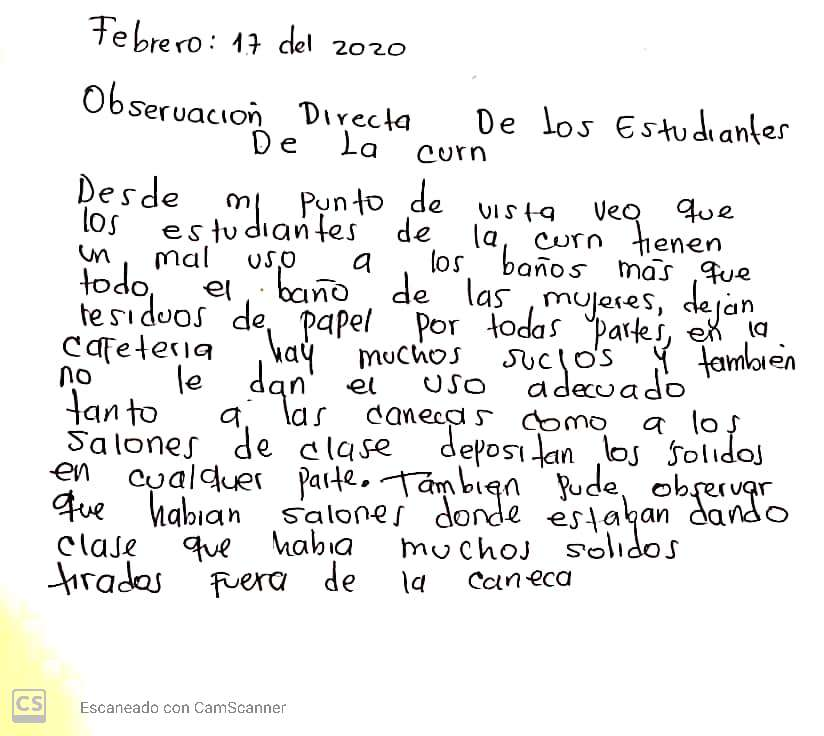 Febrero: 17 del 2020
Observación Directa De los Estudiantes
De La curn
Desde mi punto de vista veo que
los estudiantes de la curn tienen
un mal uso a los baños más que
todo, el baño de las mujeres, dejan
residuos de papel por todas partes, en la
cafeteria hay muchos sucios y también
no le dan el uso adecuado
tanto a las canecas como a los
salones de clase depositan los solidos
en cualquer parte. También pude observar
que habian salones donde estaban dando
clase que habia muchos solidos
tirados fuera de la caneca
CS Escaneado con CamScanner